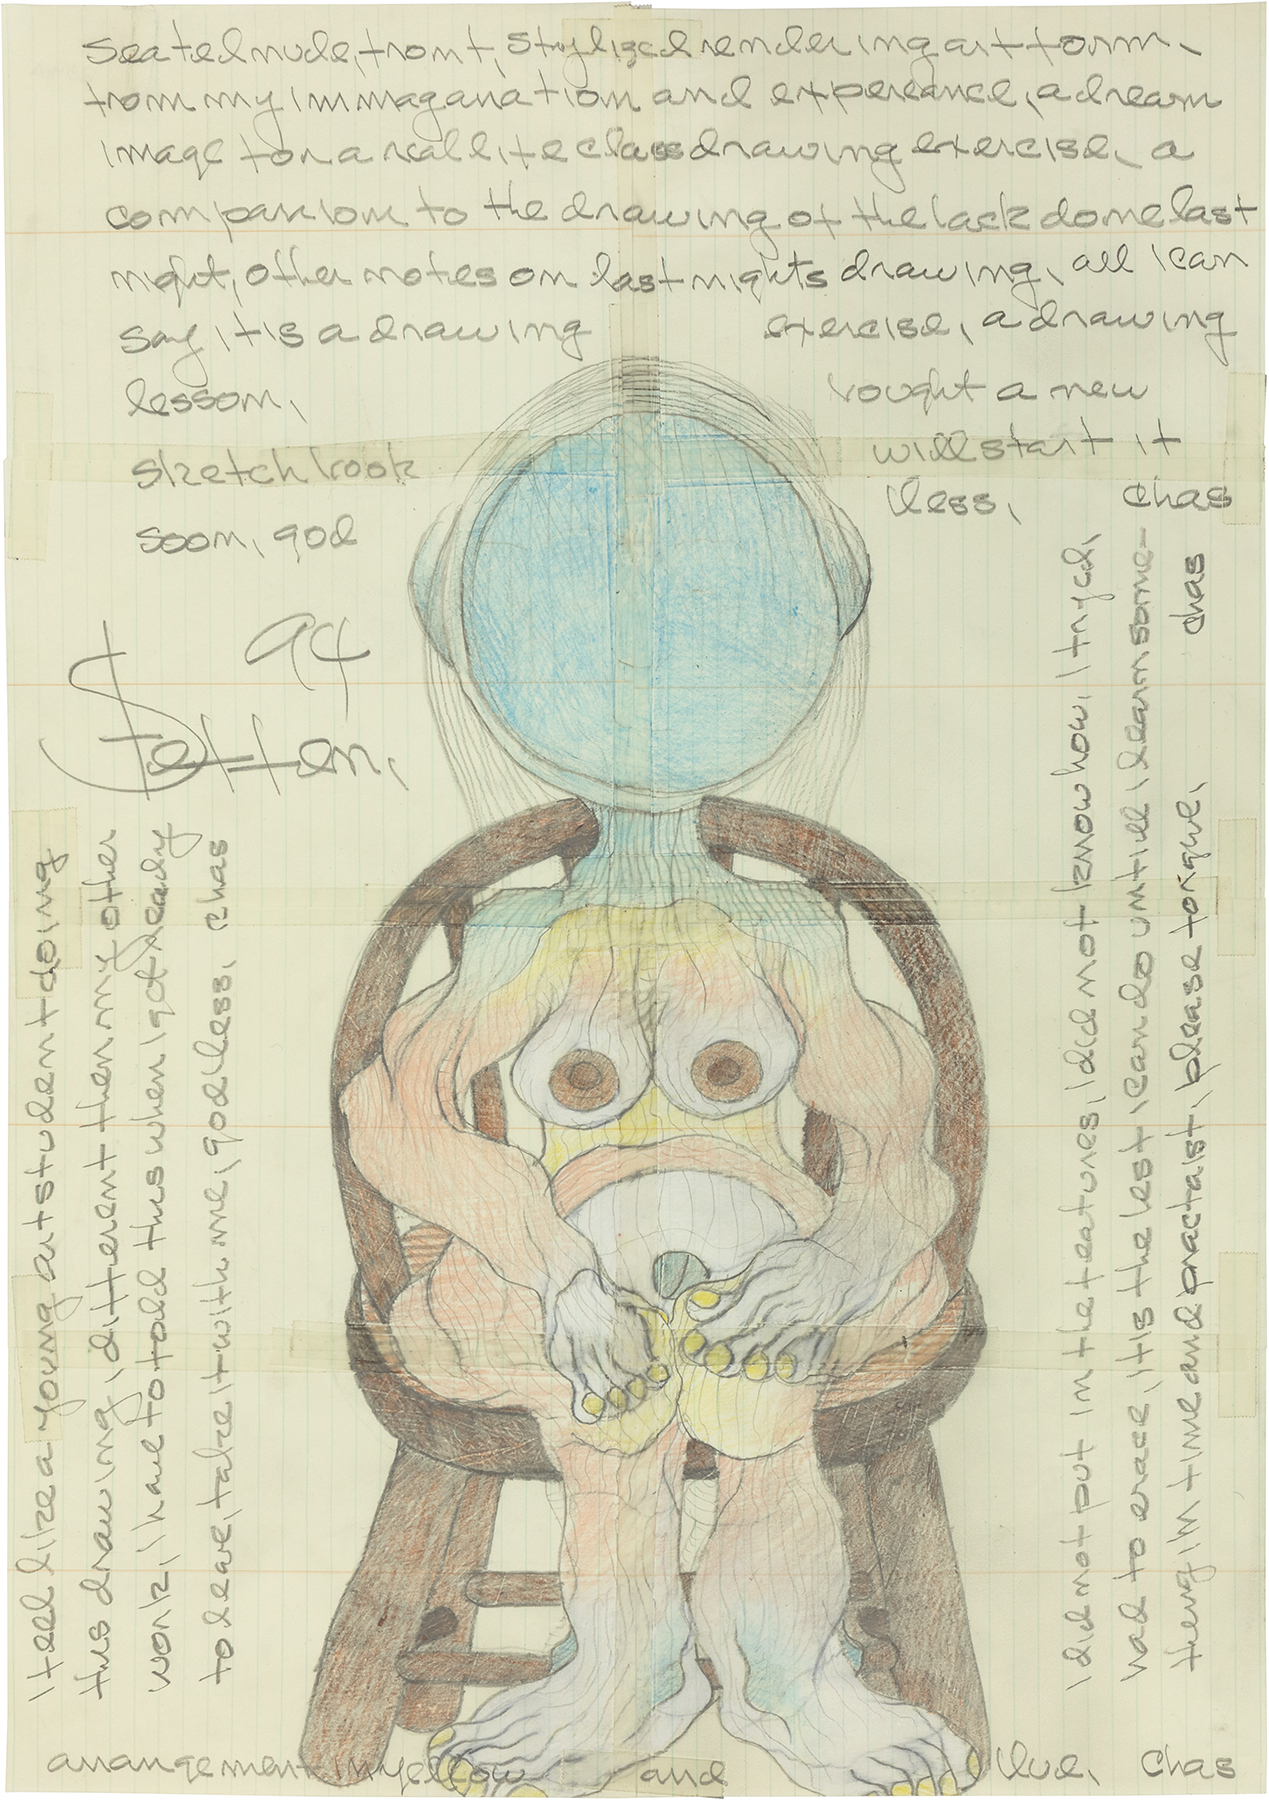 Seated nude, front, stylized rendering art form,
from my immaganation and expereance, a dream
image for a real life class drawing exercise, a
companion to the drawing of the back done last
night, other notes on last nights drawing, all I can
say, it is a drawing exercise, a drawing
lesson, bought a new
sketch book will start it
soon, god bless, chas
94
Steffen,
I feel like a young art student doing
this drawing, different then my other
work, I have to fold this when I get ready
to leave, take it with me, god bless, chas
I did not put in the features, I did not know how, I tryed,
had to erace, it is the best I can do untill I learn some-
thing in time and practaist, please forgive, chas
arangement in yellow and blue, chas